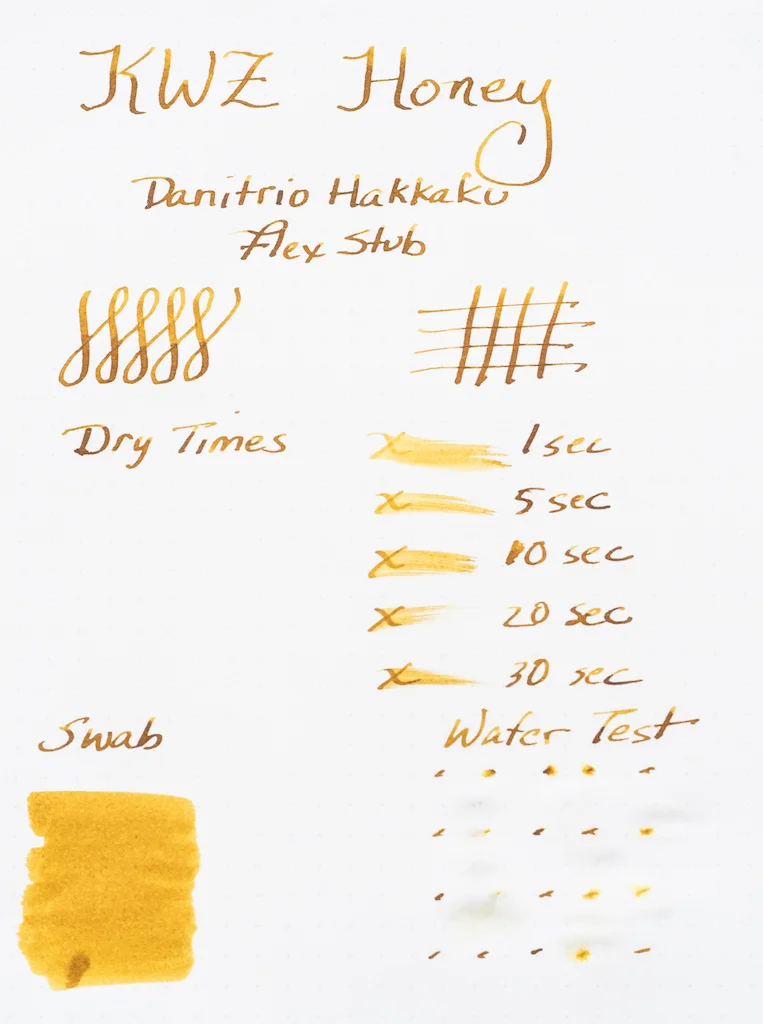 KWZ Honey
Danitrio Hakkaku
Flex Stub
Dry Times
x 1 sec
x 5 sec
x 10 sec
x 20 sec
x 30 sec
Swab
Water Test